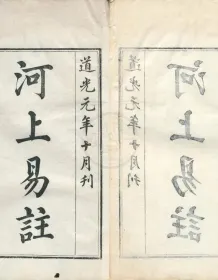 道光元年十月刋
河上易註